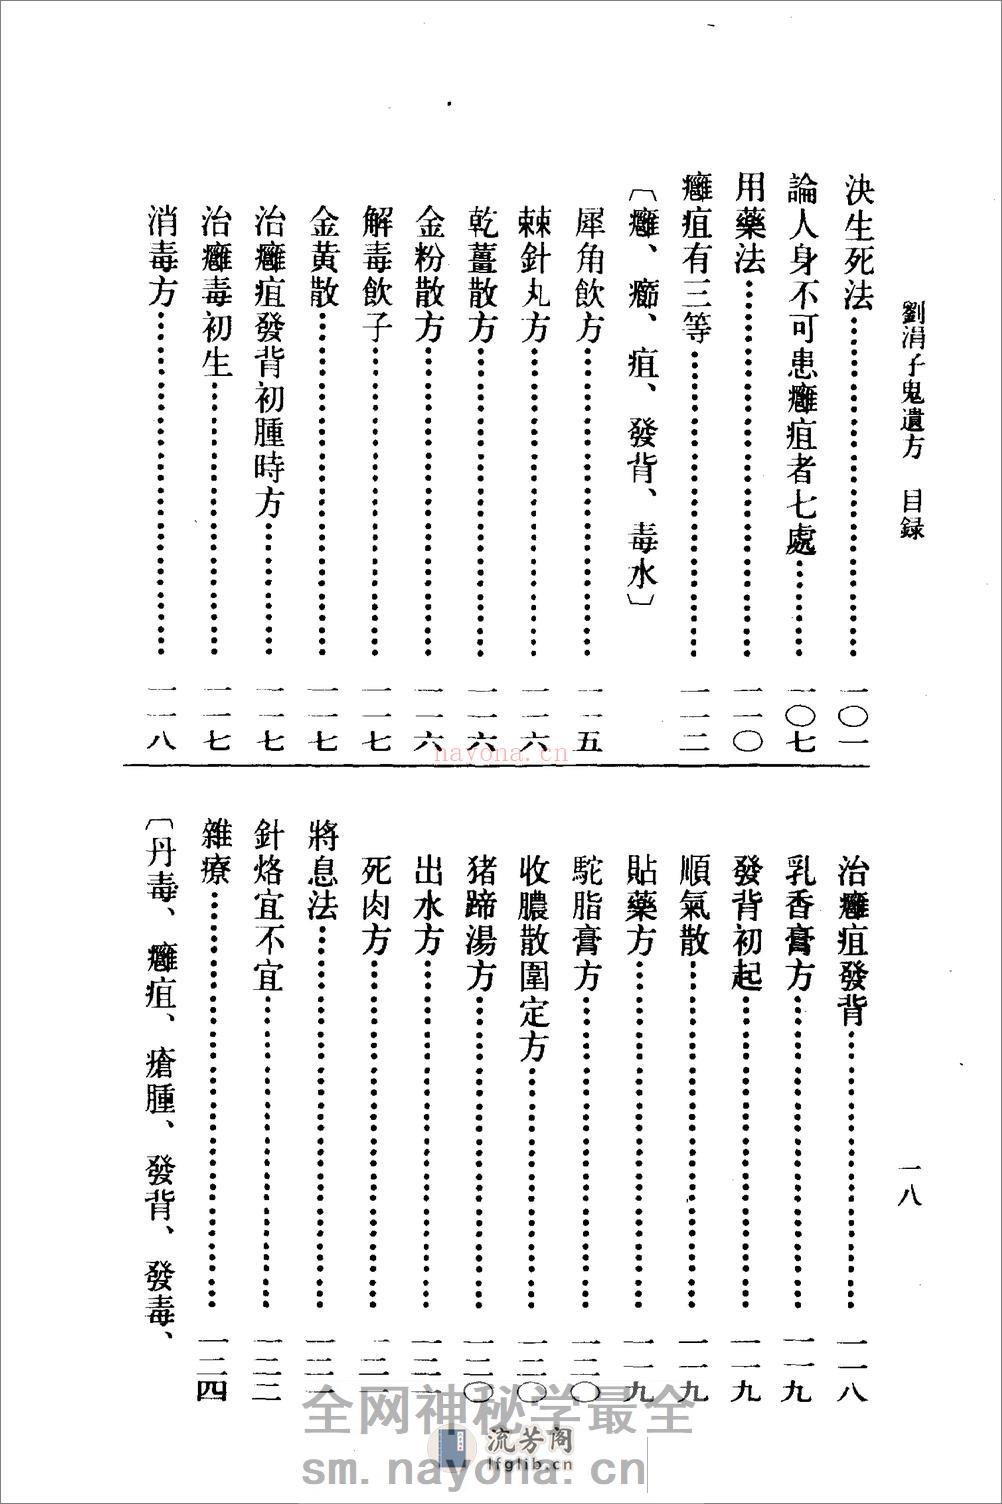 劉涓子鬼遺方　目録
一八
決生死法……一〇一
論人身不可患癰疽者七處……一〇七
用藥法……一一〇
癰疽有三等……一一二
〔癰、癤、疽、發背、毒水〕
犀角飲方……一一五
棘針丸方……一一六
乾薑散方……一一六
金粉散方……一一六
解毒飲子……一一七
金黄散……一一七
治癰疽發背初腫時方……一一七
治癰毒初生……一一七
消毒方……一一八
治癰疽發背……一一八
乳香膏方……一一九
發背初起……一一九
順氣散……一一九
貼藥方……一一九
駝脂膏方……一二〇
收膿散圍定方……一二〇
猪蹄湯方……一二〇
出水方……一二一
死肉方……一二一
將息法……一二一
針烙宜不宜……一二二
雜療……一二四
〔丹毒、癰疽、瘡腫、發背、發毒、
nayona.cn
全网神秘学最全
流芳阁
lfglib.cn
sm.nayona.cn